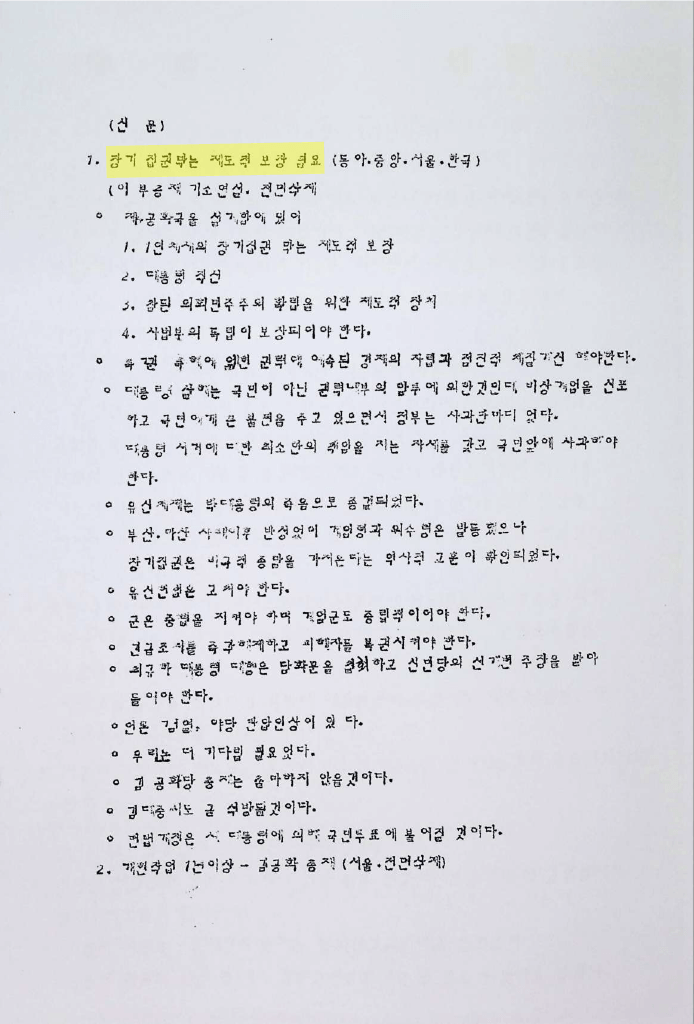 (신 문)
1. 장기 집권막는 제도적 보장 필요 (동아.중앙.서울.한국)
(이 부총재 기조연설. 전면삭제
o 제4공화국을 설계함에 있어
1. 1인체제의 장기집권 막는 제도적 보장
2. 대통령 직선
3. 참된 의회민주주의 확립을 위한 제도적 장치
4. 사법부의 독립이 보장되어야 한다.
o 특권 특혜에 위한 권력에 예속된 경제의 자립과 점진적 체질개선 해야한다.
o 대통령 살해는 국민이 아닌 권력내부의 암투에 의한것인데 비상계엄을 선포
하고 국민에게 큰 불편을 주고 있으면서 정부는 사과한마디 없다.
대통령 서거에 대한 최소한의 책임을 지는 자세를 갖고 국민앞에 사과해야
한다.
o 유신체제는 박대통령의 죽음으로 종결되었다.
o 부산.마산 사태이후 반성없이 계엄령과 위수령은 발동했으나
장기집권은 비극적 종말을 가져온다는 역사적 교훈이 확인되었다.
o 유신헌법은 고쳐야 한다.
o 군은 중립을 지켜야 하며 계엄군도 중립적이어야 한다.
o 긴급조치를 즉각해제하고 피해자를 복권시켜야 한다.
o 최규하 대통령 대행은 담화문을 철회하고 신민당의 선개헌 주장을 받아
들여야 한다.
o 언론 검열, 야당 탄압인상이 있 다.
o 우리는 더 기다릴 필요없다.
o 김 공화당 총재는 출마하지 않을것이다.
o 김대중씨도 곧 석방될것이다.
o 헌법개정은 새 대통령에 의해 국민투표에 붙여질 것이다.
2. 개헌작업 1년이상 - 김공화 총재 (서울.전면삭제)